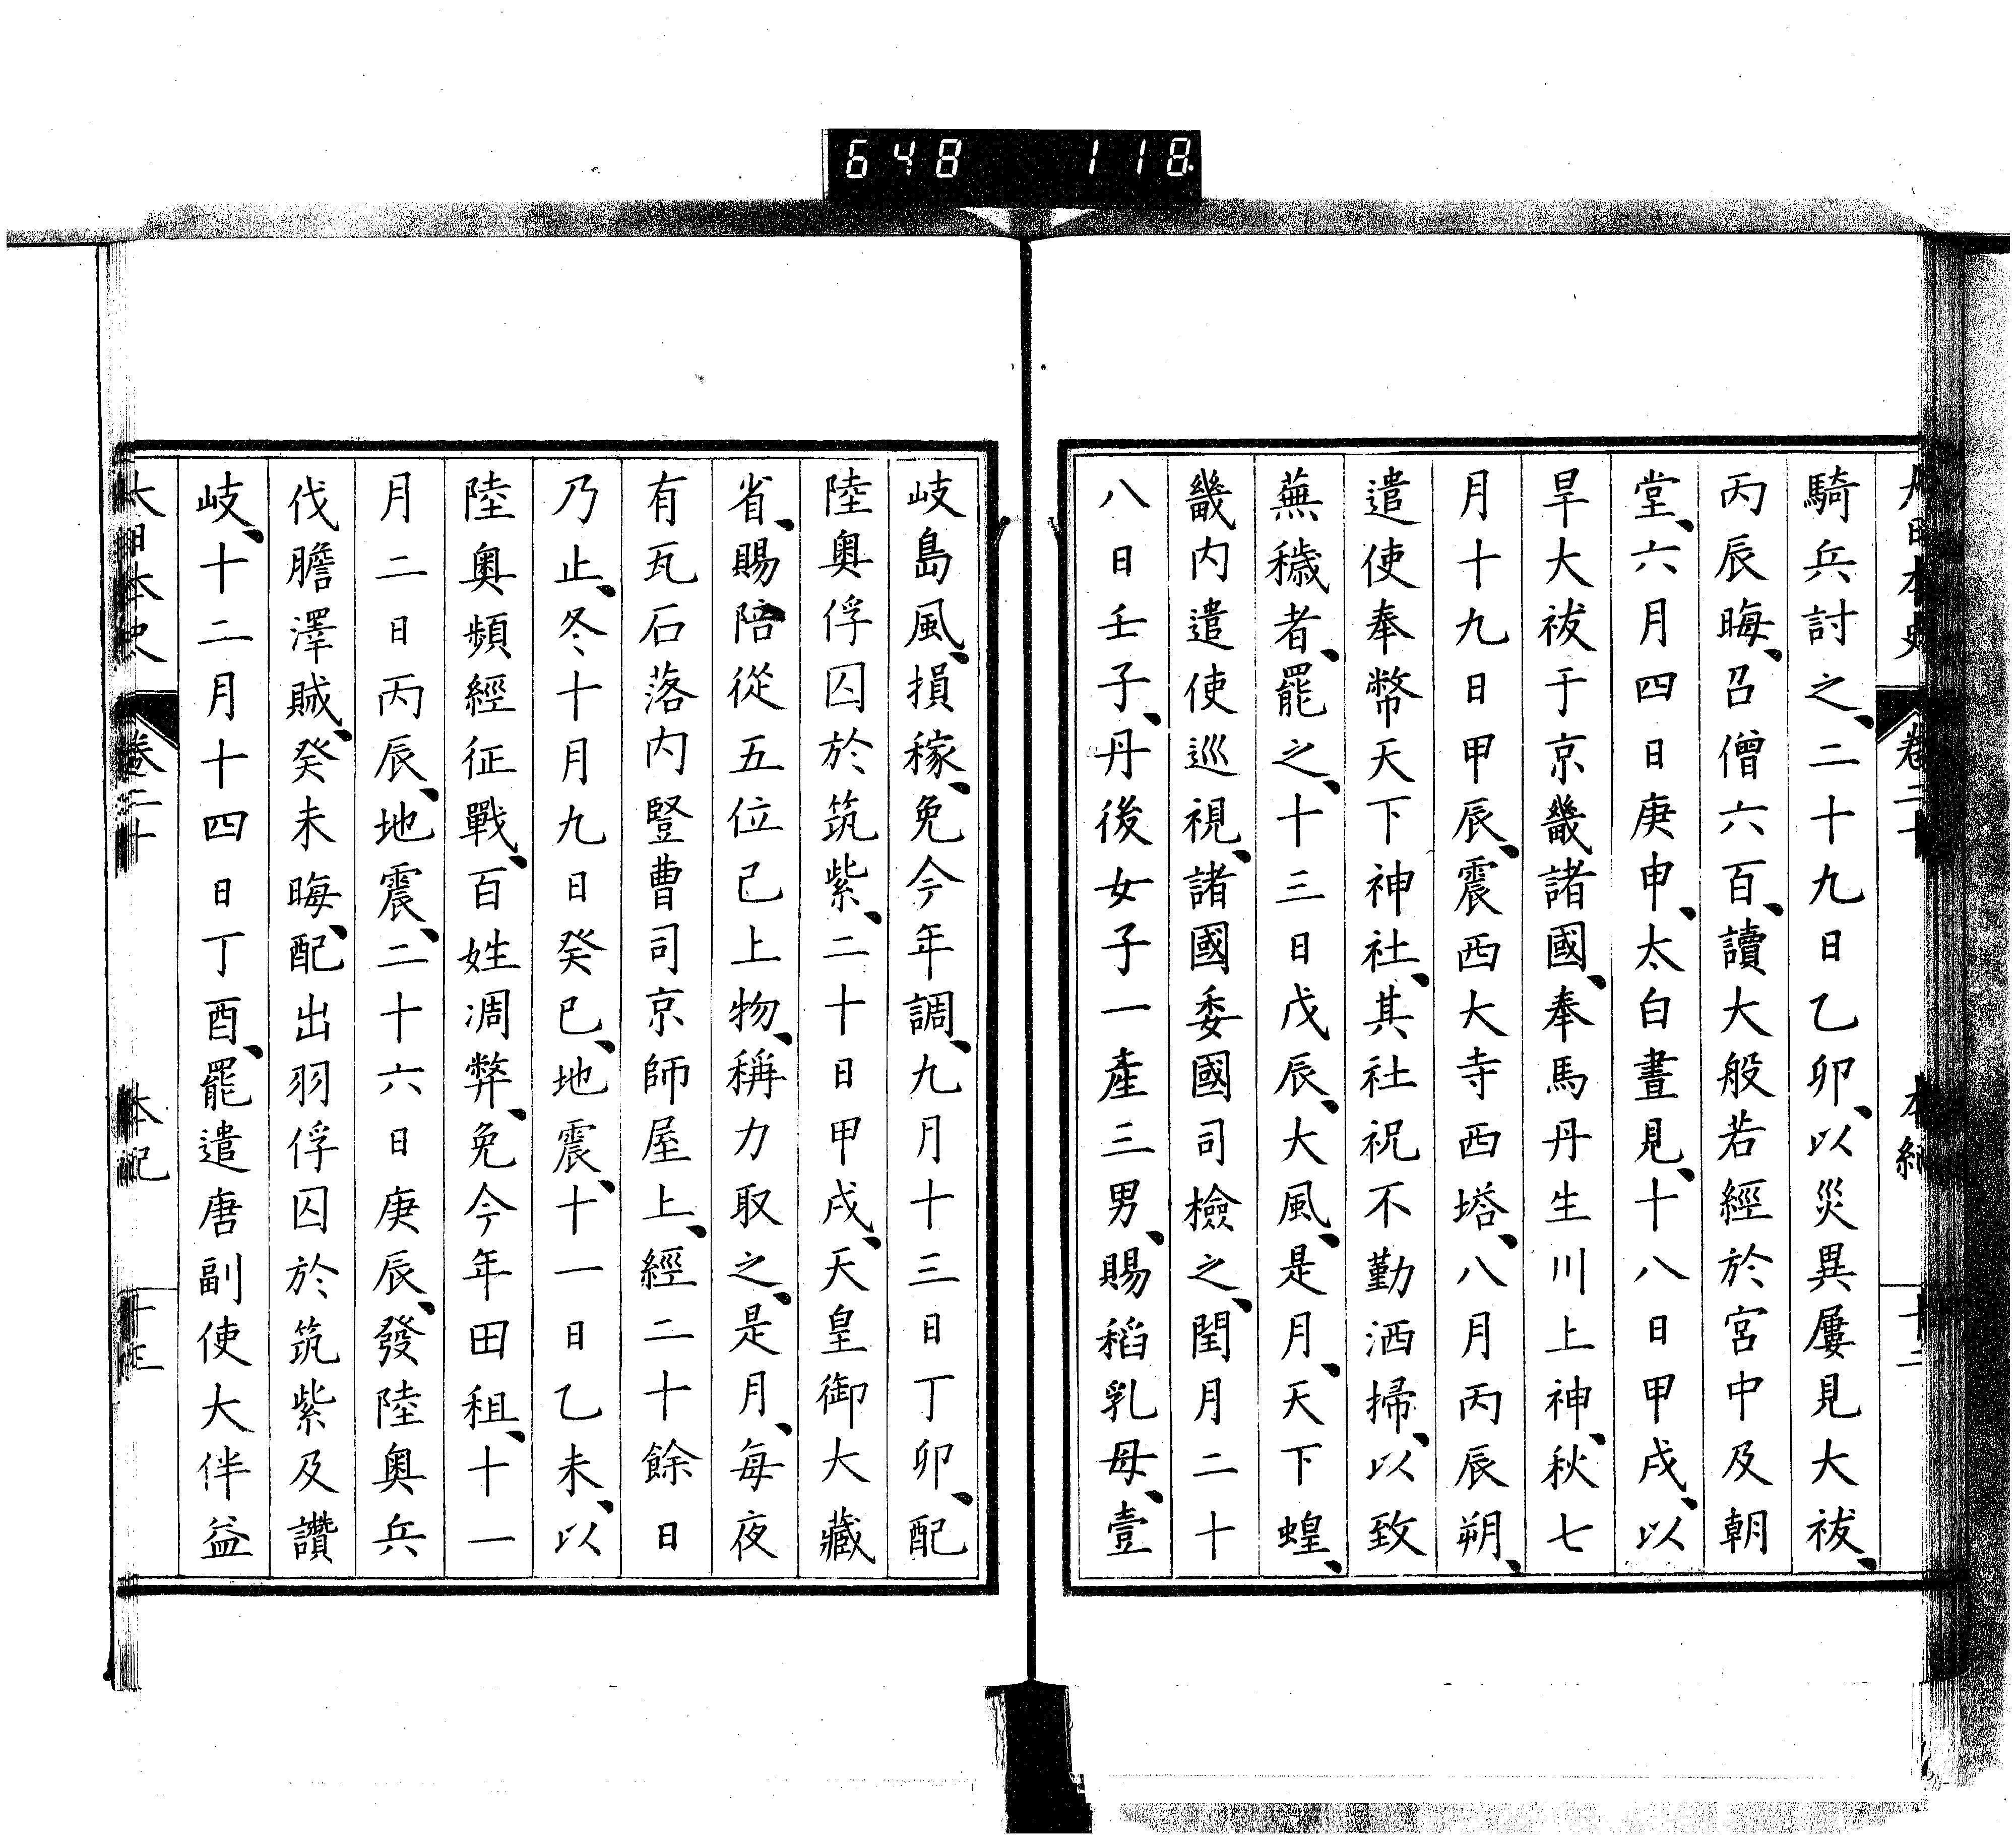 648 118
大日本史 卷二十 本紀 十二
騎兵討之、二十九日乙卯、以災異屢見大祓、
丙辰晦、召僧六百、讀大般若經於宮中及朝
堂、六月四日庚申、太白晝見、十八日甲戌、以
旱大祓于京畿諸國、奉馬丹生川上神、秋七
月十九日甲辰、震西大寺西塔、八月丙辰朔、
遣使奉幣天下神社、其社祝不勤洒掃、以致
蕪穢者、罷之、十三日戊辰、大風、是月、天下蝗、
畿内遣使巡視、諸國委國司檢之、閏月二十
八日壬子、丹後女子一產三男、賜稻乳母、壹
岐島風、損稼、免今年調、九月十三日丁卯、配
陸奥俘囚於筑紫、二十日甲戌、天皇御大藏
省、賜陪從五位已上物、稱力取之、是月、每夜
有瓦石落内豎曹司京師屋上、經二十餘日
乃止、冬十月九日癸巳、地震、十一日乙未、以
陸奥頻經征戰、百姓凋弊、免今年田租、十一
月二日丙辰、地震、二十六日庚辰、發陸奥兵
伐膽澤賊、癸未晦、配出羽俘囚於筑紫及讚
岐、十二月十四日丁酉、罷遣唐副使大伴益
大日本史 卷二十 本紀 十三